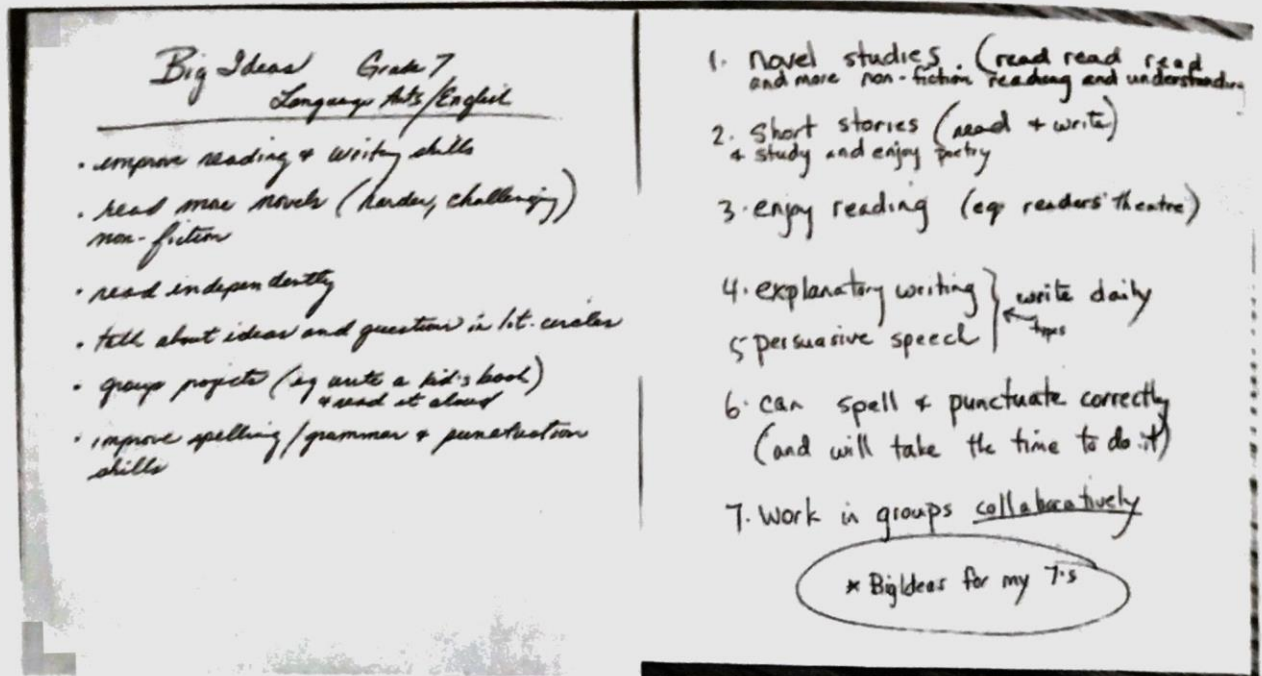 Big Ideas Grade 7
Language Arts/English
• improve reading & writing skills
• read more novels (harder, challenging)
non-fiction
• read independently
• talk about ideas and question in lit. circles
• group projects (eg write a kid's book)
& read it aloud
• improve spelling/grammar & punctuation
skills
1. novel studies. (read read read
and more non-fiction reading and understanding
2. short stories (read & write)
& study and enjoy poetry
3. enjoy reading (eg readers' theatre)
4. explanatory writing } write daily
5 persuasive speech ← types
6. can spell & punctuate correctly
(and will take the time to do it)
7. Work in groups collaboratively
* Big Ideas for my 7's